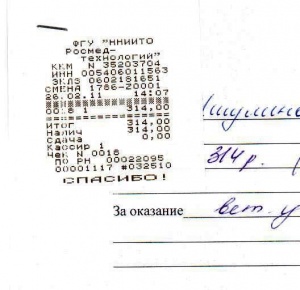 ФГУ "ННИИТО
Росмед-
технологий"
ККМ N 35203704
ИНН 005406011563
ЭКЛЗ 0602181651
СМЕНА 1786-Z0001
26.02.11 14:07
0018 1 314,00
ИТОГ 314,00
Налич 314,00
Сдача 0,00
Кассир 1
Чек N 0018
ПО РН 00022095
00001117 #032510
СПАСИБО!
314 р.
За оказание вет. у